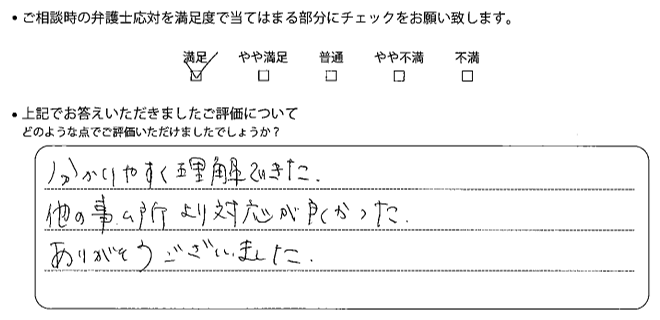 • ご相談時の弁護士応対を満足度で当てはまる部分にチェックをお願い致します。
満足 やや満足 普通 やや不満 不満
• 上記でお答えいただきましたご評価について
どのような点でご評価いただけましたでしょうか？
分かりやすく理解できた.
他の事ム所より対応が良かった.
ありがとうございました.